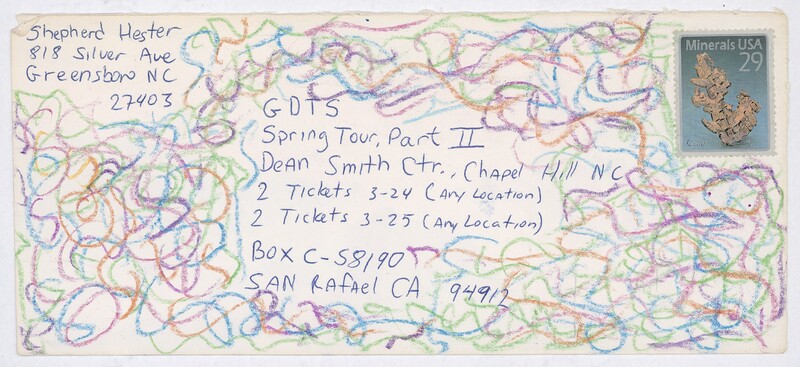 Shepherd Hester
818 Silver Ave
Greensboro NC
27403
Minerals USA
29
GDTS
Spring Tour, Part II
Dean Smith Ctr., Chapel Hill NC
2 Tickets 3-24 (Any Location)
2 Tickets 3-25 (Any Location)
Box C-S8190
SAN Rafael CA 94912